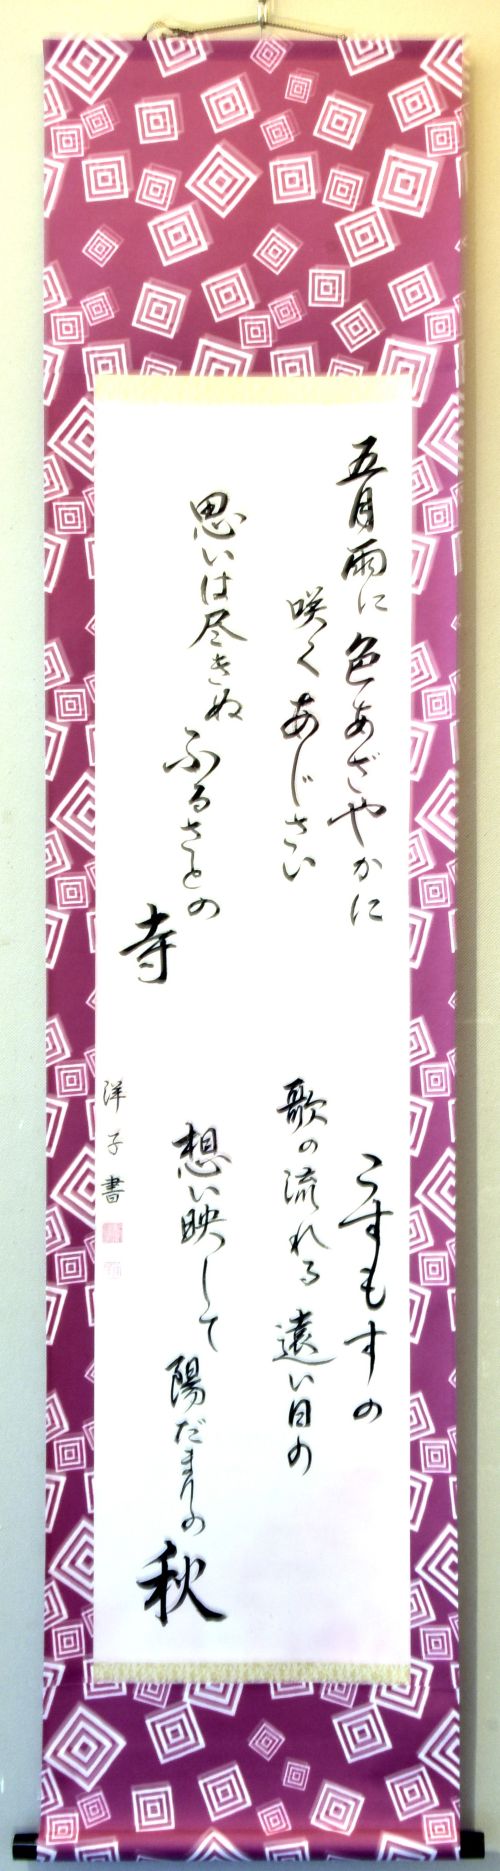 五月雨に色あざやかに
咲くあじさい
思いは尽きぬ
ふるさとの
寺
こすもすの
歌の流れる遠い日の
想い映して
陽だまりの
秋
洋子書